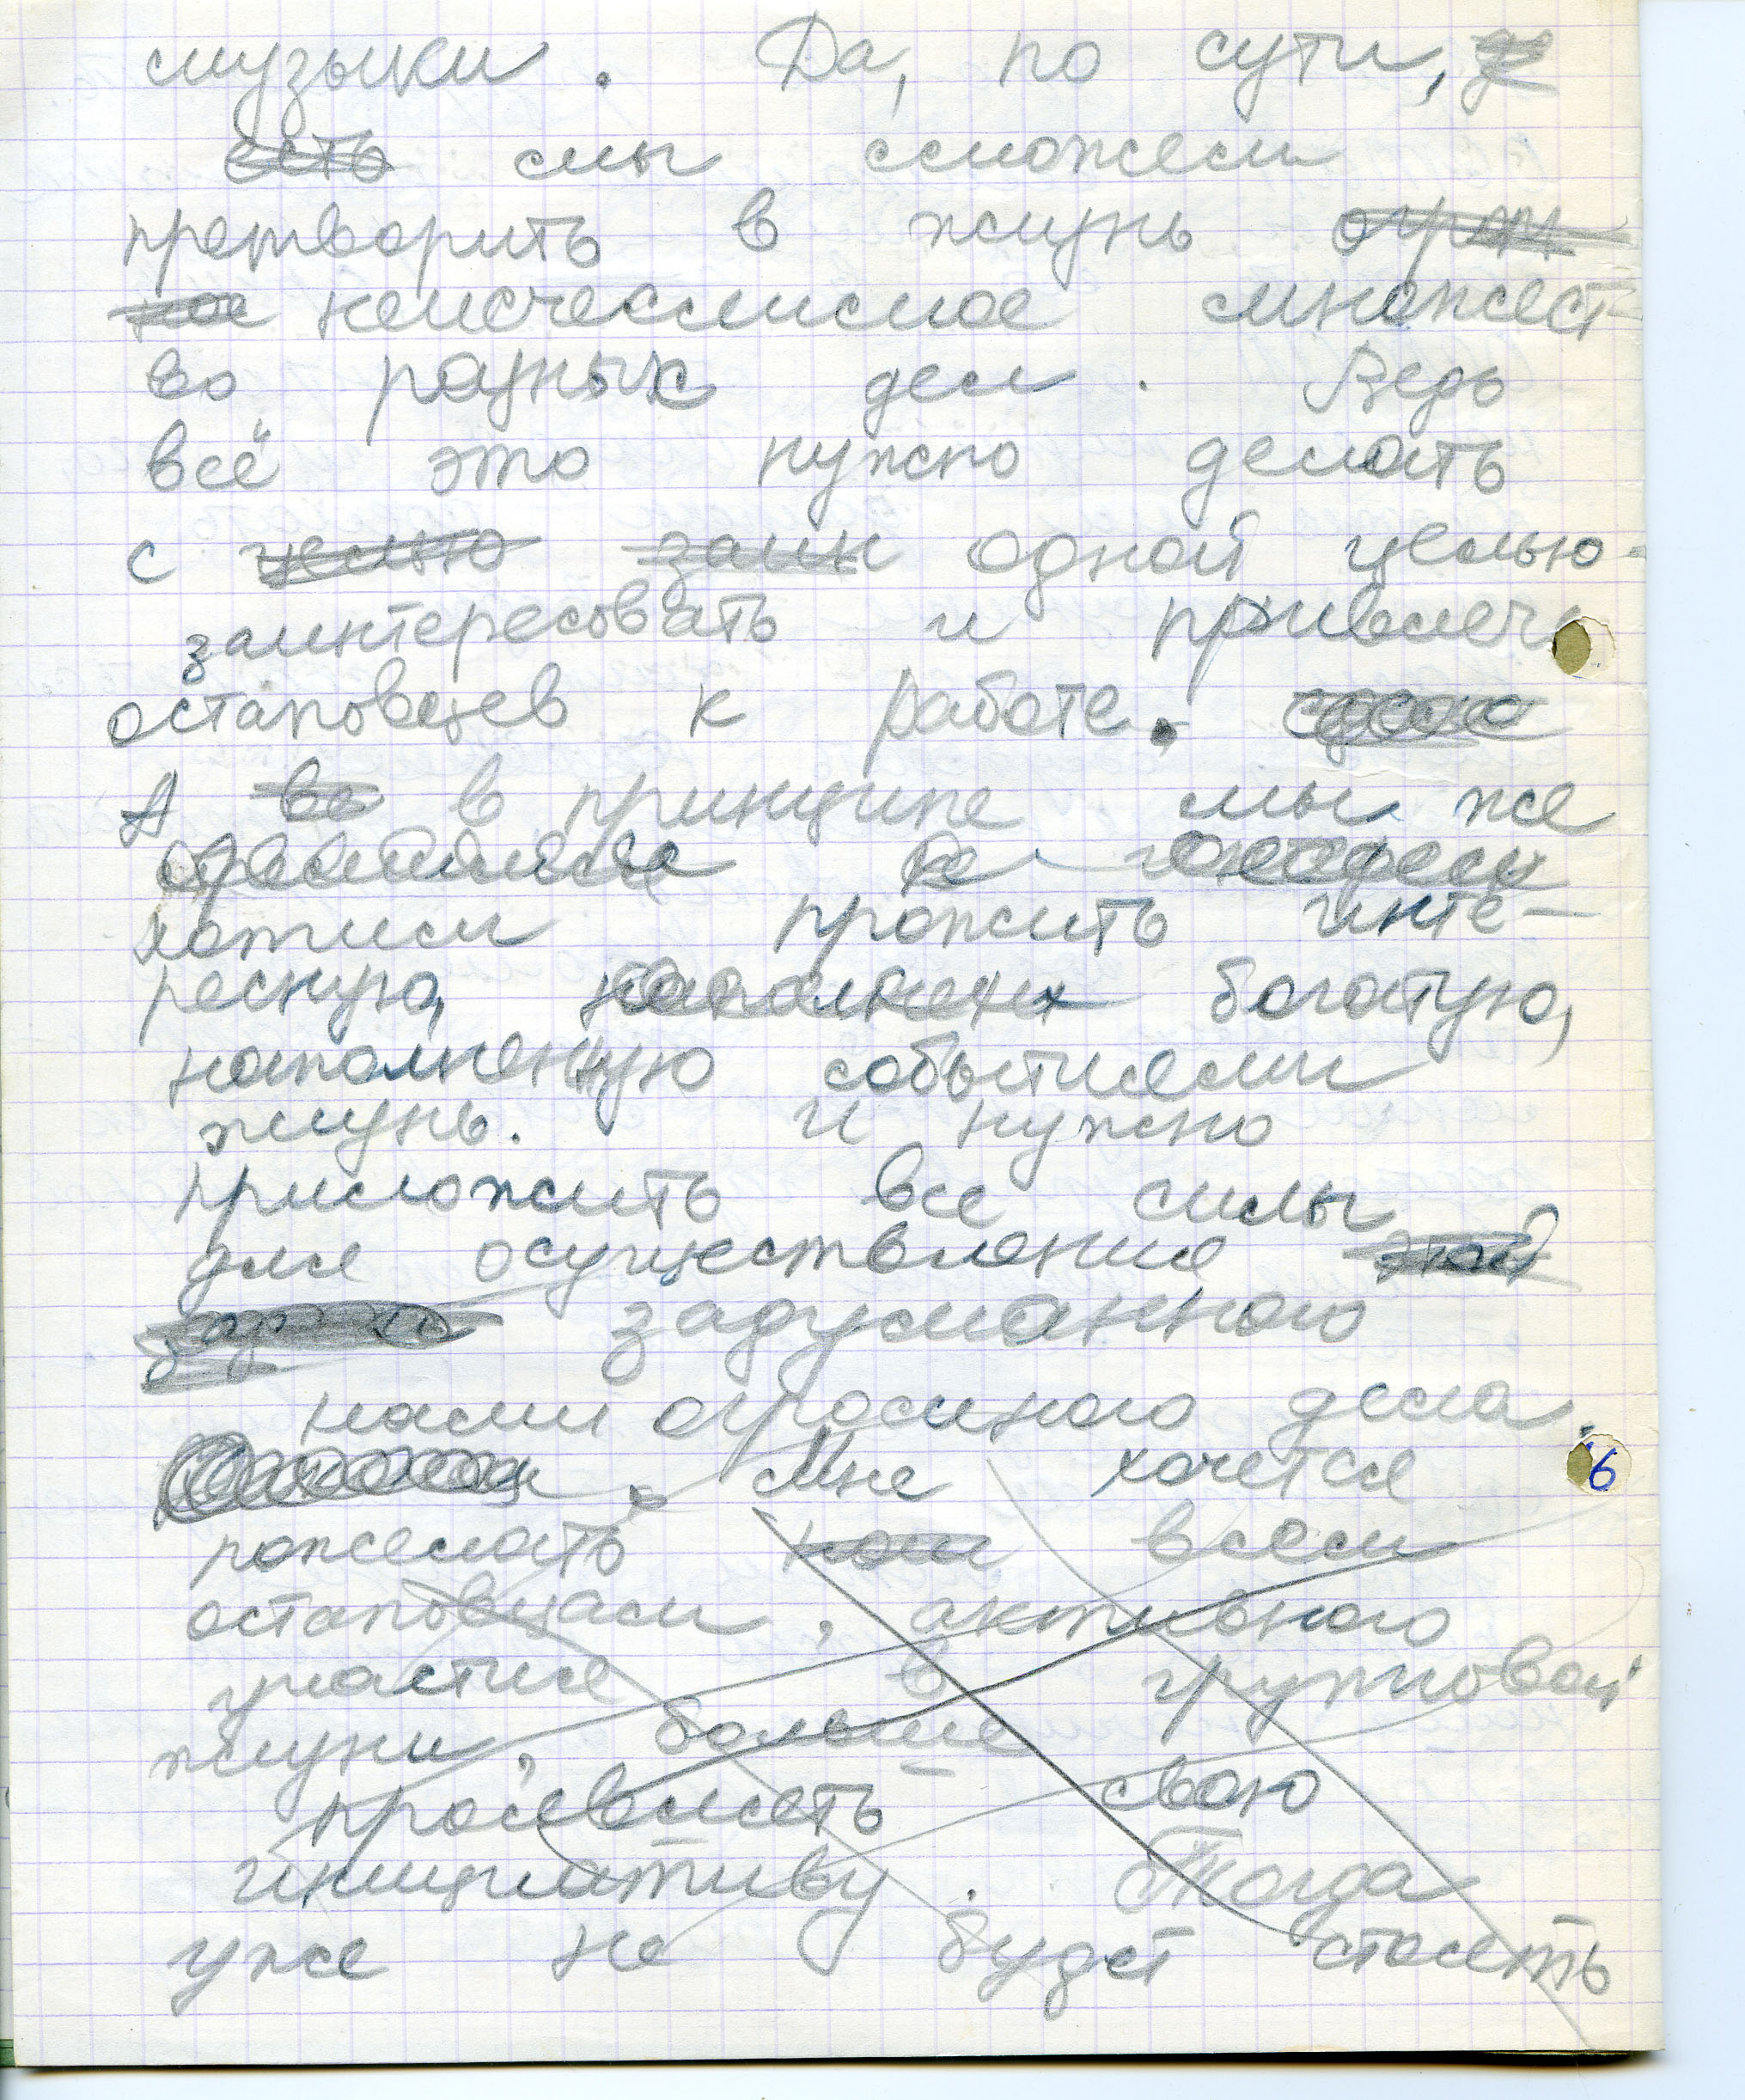 музыки. Да, по сути,
есть мы сможем
претворить в жизнь
неисчеслимое множест-
во разных дел. Ведь
всё это нужно делать
с целью заин одной целью -
заинтересовать и привлечь
остаповцев к работе.
А во в принципе мы же
хотим прожить инте-
ресную, наполненн богатую,
наполненную событиями
жизнь. И нужно
приложить все силы
для осуществления этой
задуманного
нами огромного дела.
Мне хочется
пожелать нам всем
остаповцам, активного
участия в групповой
жизни, больше
проявлять свою
инициативу. Тогда
уже не будет стоять
6